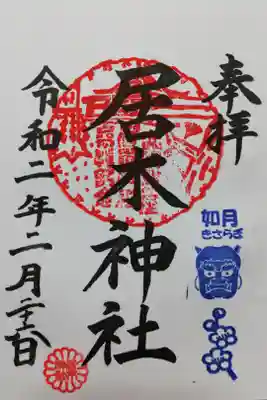 奉拝
如月
きさらぎ
居木神社
令和二年二月二十三日